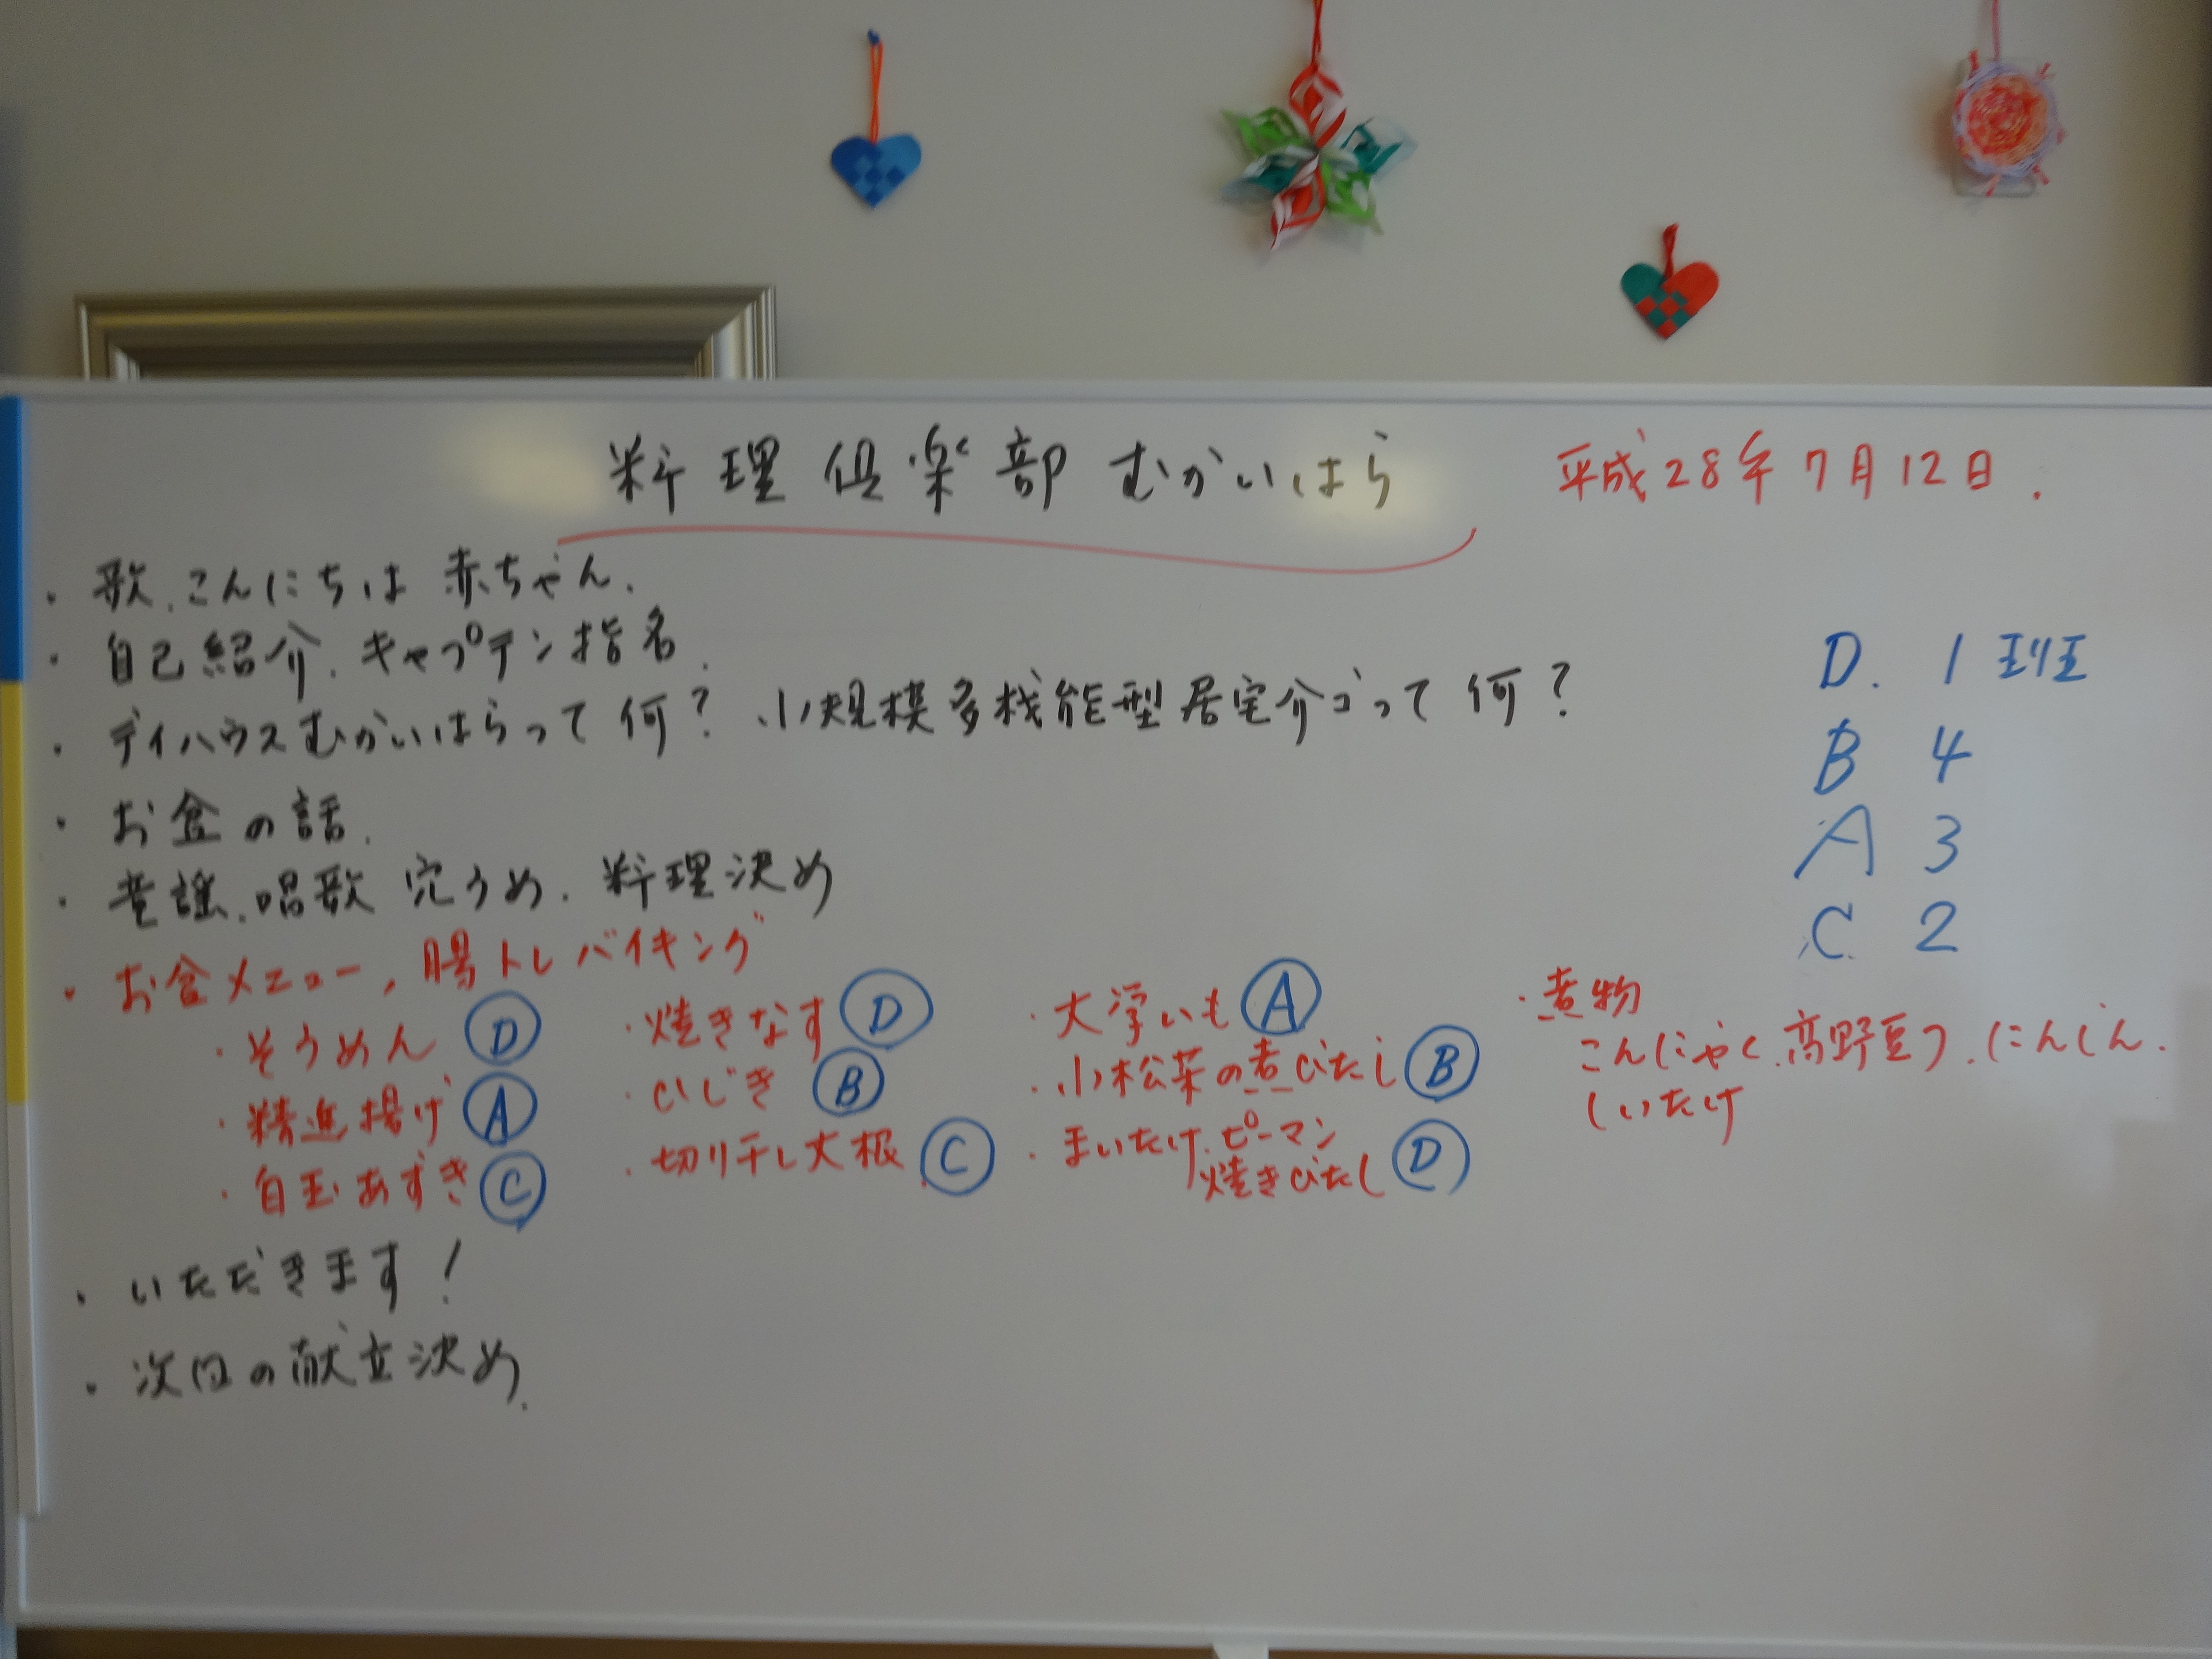 料理倶楽部むかいはら 平成28年7月12日.
・歌.こんにちは赤ちゃん.
・自己紹介.キャプテン指名.
・デイハウスむかいはらって何? 小規模多機能型居宅介ゴって何?
・お金の話.
・童謡.唱歌 穴うめ.料理決め
・お食メニュー,腸トレバイキング
・そうめん Ⓓ
・精進揚げ Ⓐ
・白玉あずき Ⓒ
・焼きなす Ⓓ
・ひじき Ⓑ
・切り干し大根 Ⓒ
・大学いも Ⓐ
・小松菜の煮びたし Ⓑ
・まいたけ.ピーマン
焼きびたし Ⓓ
・煮物
こんにゃく.高野豆フ.にんじん.
しいたけ
・いただきます!
・次回の献立決め.
D. 1班
B 4
A 3
C. 2